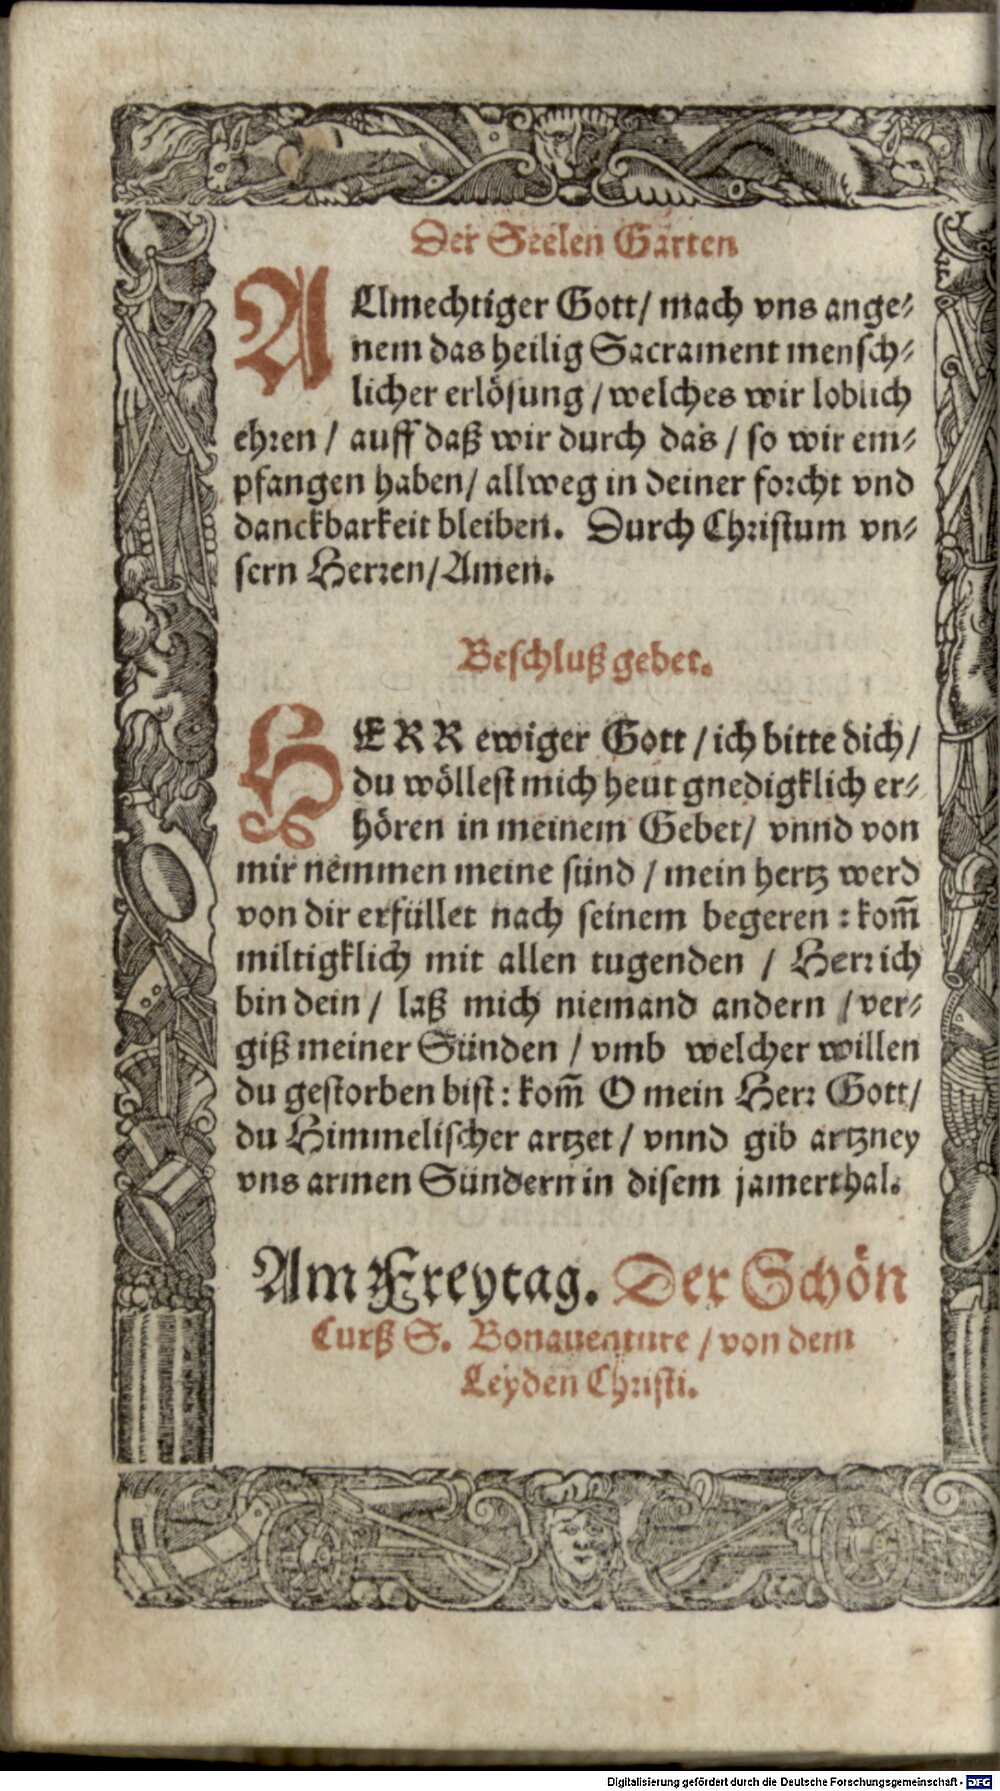 Der Seelen Garten
ALlmechtiger Gott/ mach vns ange⸗
nem das heilig Sacrament mensch⸗
licher erlösung / welches wir loblich
ehren / auff daß wir durch das / so wir em⸗
pfangen haben/ allweg in deiner forcht vnd
danckbarkeit bleiben. Durch Christum vn⸗
sern Herren/ Amen.
Beschluß gebet.
HERR ewiger Gott / ich bitte dich /
du wöllest mich heut gnedigklich er⸗
hören in meinem Gebet/ vnnd von
mir nemmen meine sünd / mein hertz werd
von dir erfüllet nach seinem begeren : kom̄
miltigklich mit allen tugenden / Herr ich
bin dein / laß mich niemand andern / ver⸗
giß meiner Sünden / vmb welcher willen
du gestorben bist : kom̄ O mein Herr Gott/
du Himmelischer artzet / vnnd gib artzney
vns armen Sündern in disem jamerthal.
Am Freytag. Der Schön
Curß S. Bonauenture / von dem
Leyden Christi.
Digitalisierung gefördert durch die Deutsche Forschungsgemeinschaft - DFG